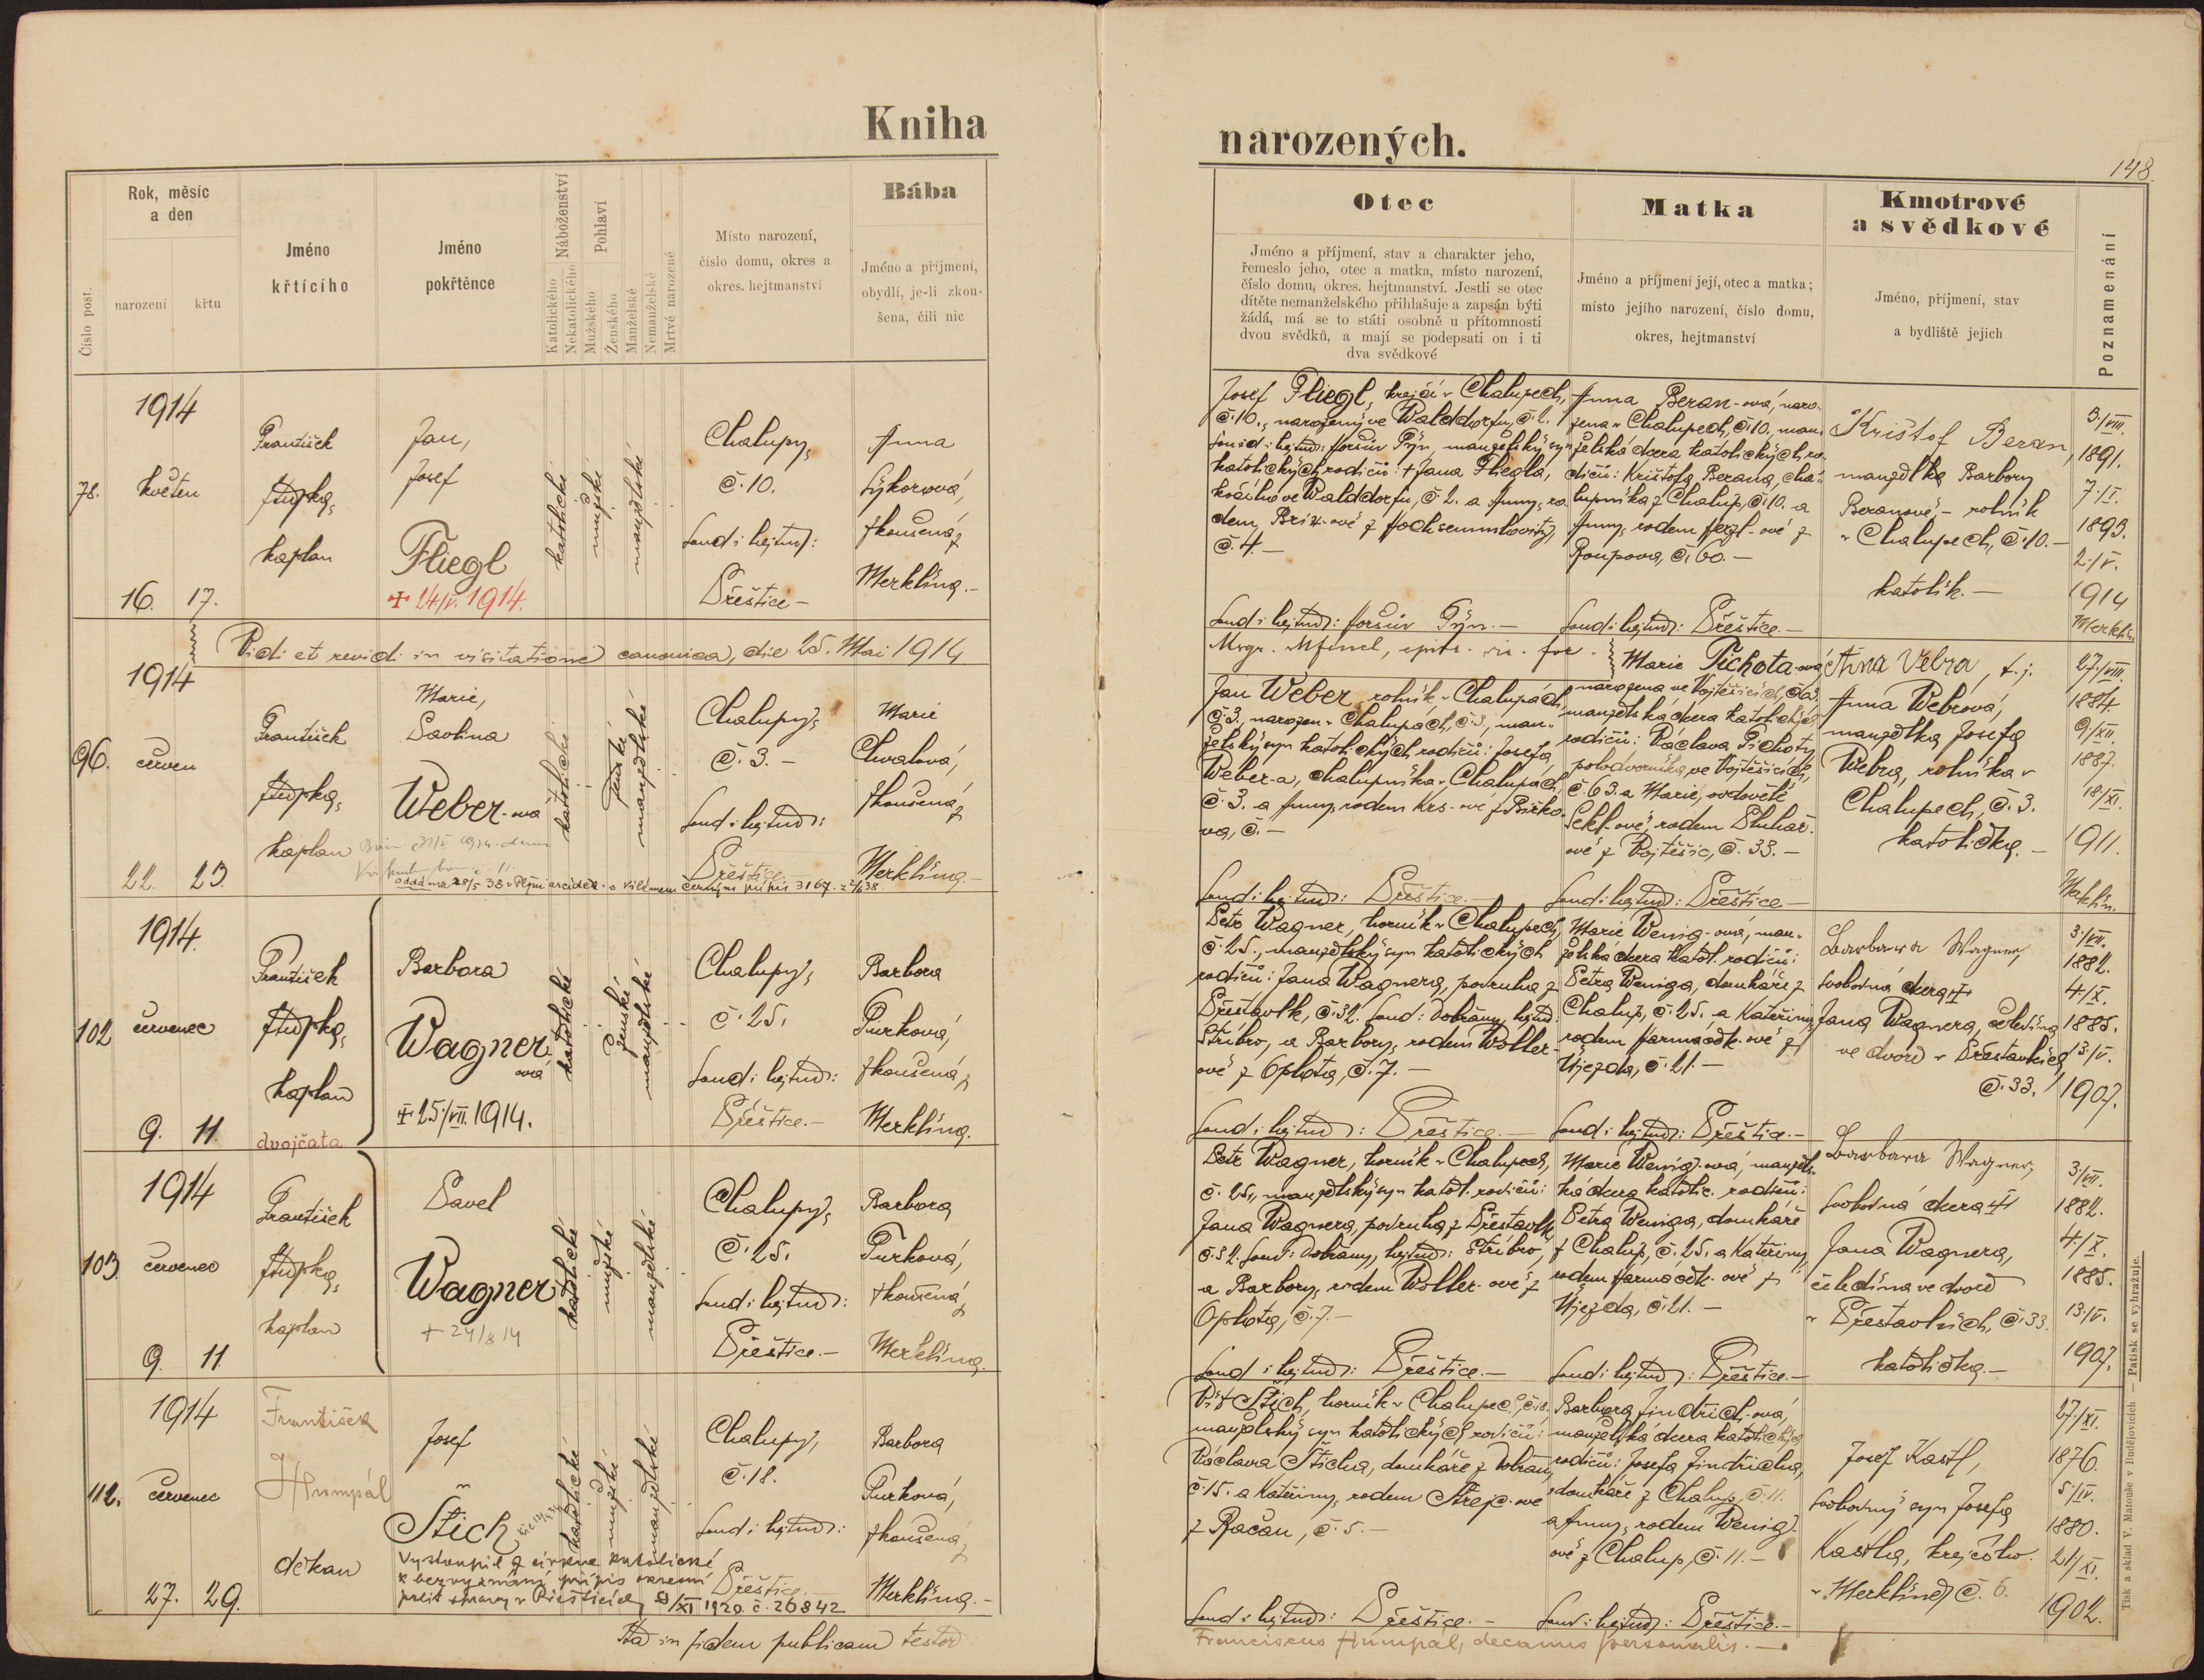 Kniha
Rok, měsíc
a den
narození
křtu
Číslo post.
Jméno
křtícího
Jméno
pokřtěnce
Náboženství
Katolického
Nekatolického
Pohlaví
Mužského
Ženského
Manželské
Nemanželské
Mrtvé narozené
Místo narození,
číslo domu, okres a
okres. hejtmanství
Bába
Jméno a příjmení,
obydlí, je-li zkou-
šena, čili nic
1914
78.
květen
16. 17.
František
kaplan
Jan,
Josef
Fliegl
+ 24/V. 1914.
katolické
mužské
manželské
Chalupy,
č. 10.
soud i hejtm:
Přeštice-
Anna
Sýkorová,
zkoušená z
Merklína.-
Vidi et revidi in visitatione canonica, die 25. Mai 1914
1914
96.
červen
22. 23.
František
kaplan
Marie,
Pavlina
Weber-ová
katolické
ženské
manželské
Chalupy,
č. 3.-
soud i hejtm:
Přeštice
Marie
Chvalová,
zkoušená z
Merklína.-
1914.
102
červenec
9. 11.
František
kaplan
dvojčata
Barbora
Wagner-
ová
+ 25/VII. 1914.
katolické
ženské
manželské
Chalupy,
č. 25.
soud i hejtm:
Přeštice.-
Barbora
Purková,
zkoušená z
Merklína.
1914
103.
červenec
9. 11
František
kaplan
Pavel
Wagner
+ 24/8 14
katolické
mužské
manželské
Chalupy,
č. 25.
soud i hejtm:
Přeštice.-
Barbora
Purková,
zkoušená z
Merklína.
1914
112.
červenec
27. 29.
František
Humpál
děkan
Josef
Štich
Vystoupil z církve katolické
k bezvyznání přípis okresní
polit. správy v Přešticích 9/XI 1920. č. 26842
katolické
mužské
manželské
Chalupy,
č. 18.
soud i hejtm:
Přeštice.
Barbora
Purková,
zkoušená z
Merklína.-
Ita in fidem publicam testor
narozených.
148.
Otec
Jméno a příjmení, stav a charakter jeho,
řemeslo jeho, otec a matka, místo narození,
číslo domu, okres. hejtmanství. Jestli se otec
dítěte nemanželského přihlašuje a zapsán býti
žádá, má se to státi osobně u přítomnosti
dvou svědků, a mají se podepsati on i ti
dva svědkové
Matka
Jméno a příjmení její, otec a matka;
místo jejího narození, číslo domu,
okres, hejtmanství
Kmotrové
a svědkové
Jméno, příjmení, stav
a bydliště jejich
Poznamenání
Josef Fliegl, krejčí v Chalupech,
č. 10., narozený ve Walddorfu, č. 2.
soud i hejtm: Horšův Týn, manželský syn
katolických rodičů: + Jana Fliegla,
kočího ve Walddorfu, č. 2. a Anny, ro-
dem
č. 4-
soud i hejtm: Horšův Týn.-
Anna Beran-ová, naro-
zena v Chalupech, č. 10., man-
želská dcera katolických ro-
dičů: Krištofa Berana, cha-
lupníka z Chalup, č. 10. a
Anny, rodem
Roupova, č. 60.-
soud i hejtm: Přeštice.-
Krištof Beran,
manžel Barbory
Beranové- rolník
v Chalupech, č. 10.-
katolík.-
3/VIII.
1891.
7./I.
1893.
2./V.
1914
Merklín
Jan Weber, rolník v Chalupách
č. 3., narozen v Chalupách, č. 3., man-
želský syn katolických rodičů: Josefa
Weber-a, chalupníka v Chalupách,
č. 3. a Anny, rodem Krs-ové z Birko-
va, č.-
soud i hejtm: Přeštice.-
Marie Tichota-ová
narozena ve Vojtěšicích,
manželská dcera katolických
rodičů: Václava Tichoty
polodvorníka ve Vojtěšicích,
č. 63. a Marie, ovdovělé
ové z Vojtěšic, č. 33.-
soud i hejtm: Přeštice-
Anna Vebra, t. j.
Anna Webrová,
manželka Josefa
Webra, rolníka v
Chalupech, č. 3.
katolička.-
27./VIII.
1884
9/XII.
1887.
18/XI.
1911.
Merklín.
Petr Wagner, horník v Chalupech,
č. 25., manželský syn katolických
rodičů: Jana Wagnera, podruha z
Přestavlk, č. 32. soud: Dobřany, hejtm:
Stříbro, a Barbory, rodem Woller-
ové z Oplota, č. 7.-
soud i hejtm: Přeštice.-
Marie Wenig-ová, man-
želská dcera katol. rodičů:
Petra Weniga, domkáře z
Chalup, č. 25. a Kateřiny,
rodem
Újezda, č. 21.-
soud i hejtm: Přeštice.-
Barbara Wagner,
svobodná dcera +
Jana Wagnera, čeledína
ve dvoře v Přestavlkách
č. 33.
3./VII.
1882.
4/X.
1885.
13./V.
1907.
Petr Wagner, horník v Chalupech,
č. 25., manželský syn katol. rodičů:
Jana Wagnera, podruha z Přestavlk,
č. 32. soud: Dobřany, hejtm: Stříbro,
a Barbory, rodem Woller-ové z
Oplota, č. 7.-
soud i hejtm: Přeštice.-
Marie Wenig-ová, manžels-
ká dcera katolic. rodičů:
Petra Weniga, domkáře
z Chalup, č. 25. a Kateřiny
rodem
Újezda, č. 21.-
soud i hejtm: Přeštice.-
Barbara Wagner,
svobodná dcera +
Jana Wagnera,
čeledína ve dvoře
v Přestavlkách, č. 33.
katolička.-
3./VII.
1882.
4/X.
1885.
13./V.
1907.
Vít Štich, horník v Chalupech, č. 18.
manželský syn katolických rodičů:
Václava Šticha, domkáře z Dobřan,
č. 15. a Kateřiny, rodem Strejc-ové
z Račan, č. 5.-
soud i hejtm: Přeštice.-
Barbora Jindřich-ová,
manželská dcera katolických
rodičů: Josefa Jindřicha,
domkáře z Chalup, č. 11.
a Anny, rodem Wenig-
ové z Chalup, č. 11.-
soud i hejtm: Přeštice.-
Josef Kastl,
svobodný syn Josefa
Kastla, krejčího
v Merklíně č. 6.
27/XI.
1876.
5/IV.
1880.
21/XI.
1902.
Franciscus Humpál, decanus personalis.-
Tisk a sklad V. Matouše v Budějovicích – Patisk se vyhražuje.